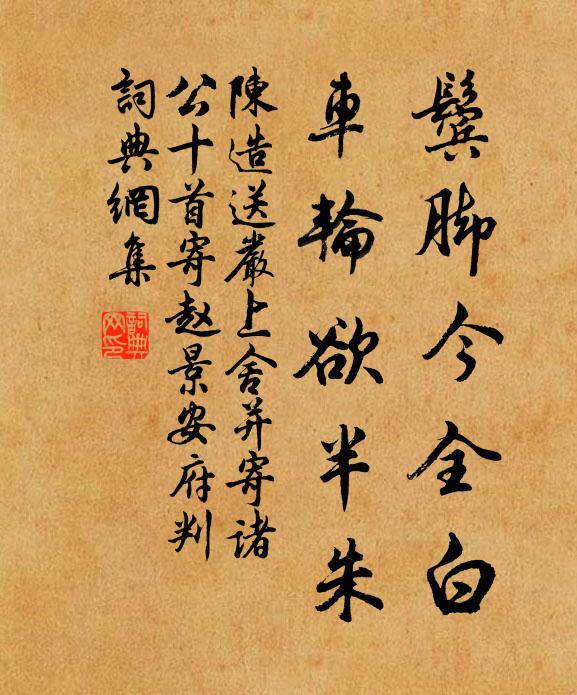 鬢脚今全白
車輪欲半朱
陳造送嚴上舍并寄諸
公十首寄趙景安府判
詞典網集
詞典
网印